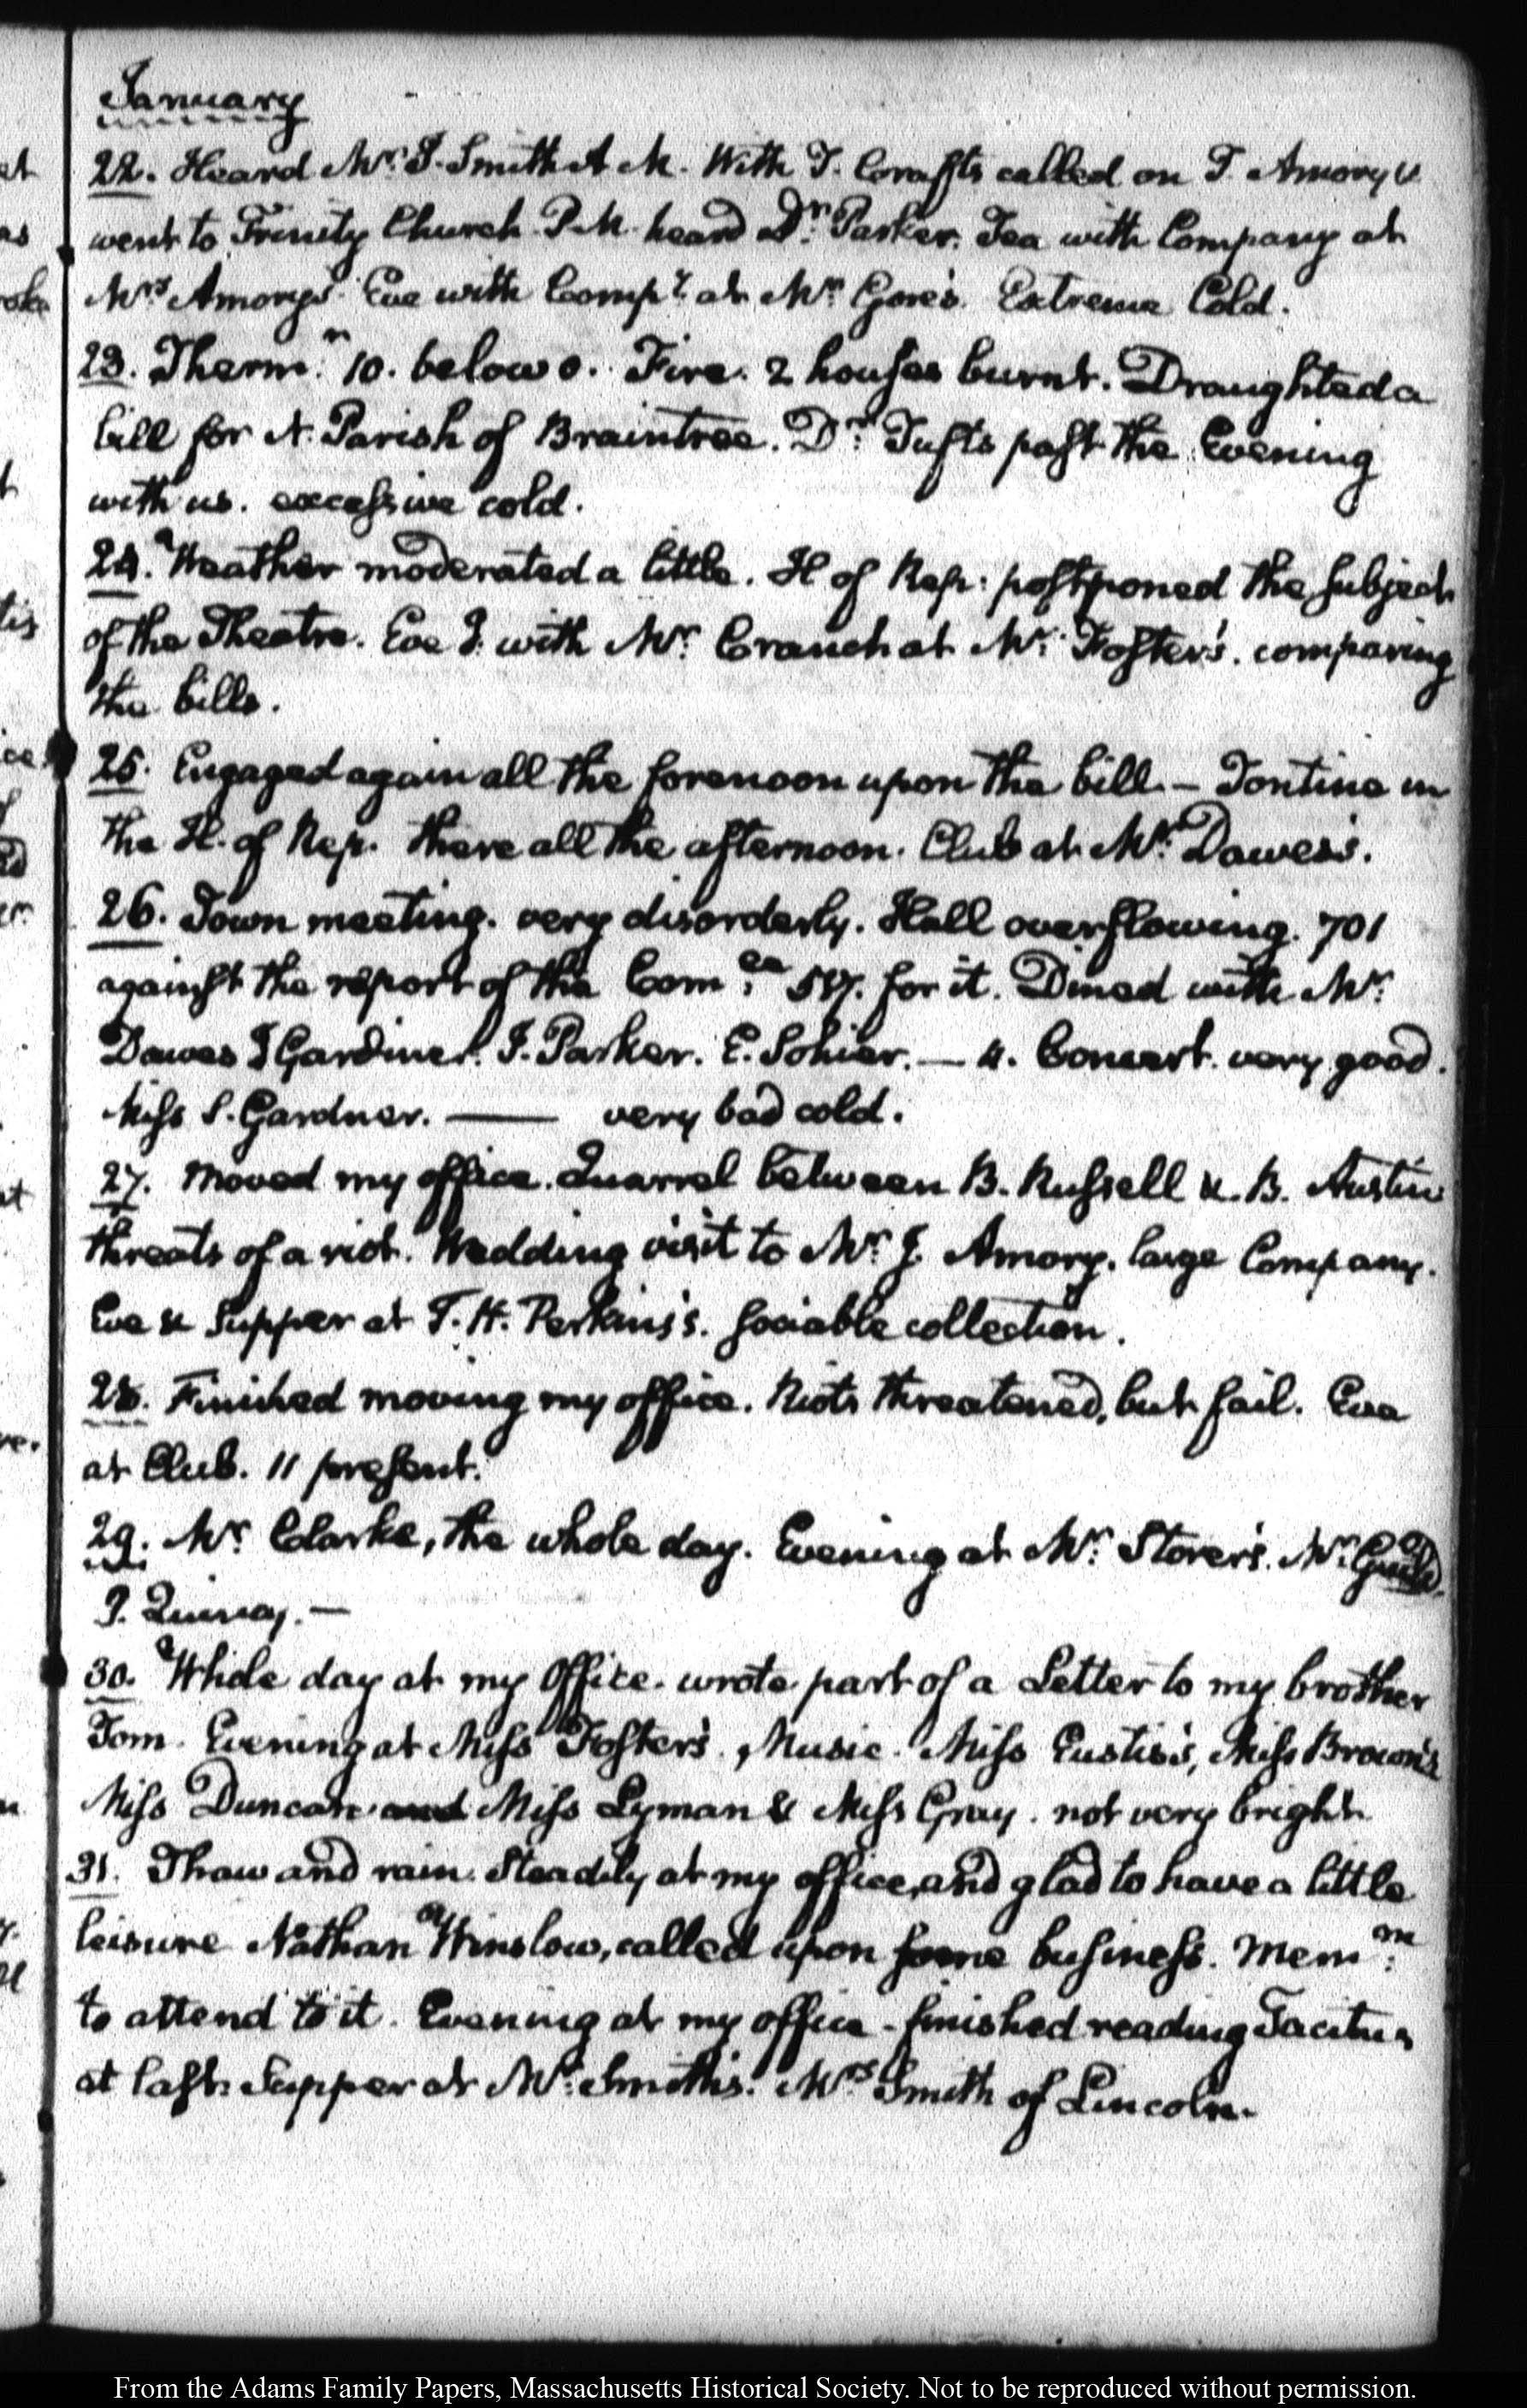 January
22. Heard Mr. I. Smith A M. With T. Crafts called on T. Amory &
went to Trinity Church P.M. heard Dr. Parker. Tea with Company at
Mrs Amory's. Eve with Compy. at Mr. Gore's. Extreme Cold.
23. Therm.m 10. below 0. Fire. 2 houses burnt. Draughted a
bill for N. Parish of Braintree. Dr. Tufts past the Evening
with us. excessive cold.
24. Weather moderated a little. H of Rep: postponed the subject
of the Theatre. Eve I. with Mr. Cranch at Mr. Foster's. comparing
the bills.
25. Engaged again all the forenoon upon the bill. — Tontine in
the H. of Rep. there all the afternoon. Club at Mr. Dawes's.
26. Town meeting. very disorderly. Hall overflowing. 701
against the report of the Com.ee 517. for it. Dined with Mr.
Dawes J Gardiner. I. Parker. E. Sohier. — 4. Concert. very good.
Miss S. Gardner. — very bad cold.
27. Moved my office. Quarrel between B. Russell &. B. Austin
threats of a riot. Wedding visit to Mr. J. Amory. large Company.
Eve & Supper at T. H. Perkins's. sociable collection.
28. Finished moving my office. Riots threatened, but fail. Eve
at Club. 11 present.
29. Mr. Clarke, the whole day. Evening at Mr. Storer's. Mr.
J. Quincy. —
30. Whole day at my Office. wrote part of a Letter to my brother
Tom. Evening at Miss Foster's. Music. Miss Eustis's, Miss Brown's
Miss Duncan and Miss Lyman & Miss Gray. not very bright
31. Thaw and rain. Steadily at my office, and glad to have a little
leisure Nathan Winslow, called upon some business. Mem.m
to attend to it. Evening at my office - finished reading Tacitus
at last. Supper at Mr. Smith's. Mrs Smith of Lincoln.
From the Adams Family Papers, Massachusetts Historical Society. Not to be reproduced without permission.